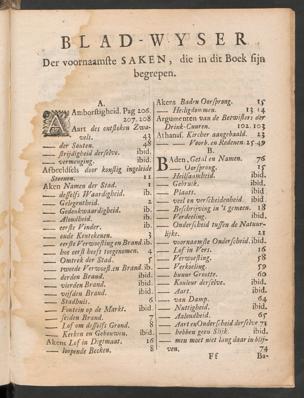 BLAD-WYSER
Der voornaamste SAKEN, die in dit Boek sijn
begrepen.
A.
AAmborstigheid. Pag 206.
207, 208
Aart des ontstoken Zwa-
vels. 43
—— der Souten. 48
—— strijdigheid derselve. ibid.
—— vermenging. ibid.
Afbeeldsels door konstig ingeleide
Steenen. 11
Aken Naming der Stad. 1
—— desselfs Waardigheid. ib.
—— Gelegentheid. 2
—— Gedenkwaardigheid. ib.
—— Aloudheid. ib.
—— eerste Vinder. ib.
—— oude Kentekenen. 3
—— eerste Verwoesting en Brand. ib.
—— hoe eerst heeft toegenomen. 4
—— Omtrek der Stad. 5
—— tweede Verwoest. en Brand. ib.
—— derden Brand. ibid.
—— vierden Brand. ibid.
—— vijfden Brand. ibid.
—— Stadhuis. 6
—— Fontein op de Markt. ibid.
—— sesden Brand. 7
—— Lof om desselfs Grond. 8
—— Kerken en Gebouwen. ibid.
Akens Lof in Digtmaat. 16
—— loopende Becken. 8
Akens Baden Oorsprong. 15
—— Heiligdommen. 13 14
Argumenten van de Berwisters der
Drink-Cuuren. 102. 103
Athanas. Kircher aangehaald. 23
—— Voorb. en Redenen. 25 49
B.
BAden, Getal en Namen. 76
—— Oorsprong. 15
—— Heilsaamheid. ibid.
—— Gebruik. ibid.
—— Plaats. ibid.
—— veel en verscheidenheid. ibid.
—— Beschrijving in 't gemeen. 18
—— Verdeeling. ibid.
—— Onderscheid tussen de Natuur-
lijke. 21
—— voornaamste Onderscheid. ibid.
—— Lof in Vers. 16
—— Verwarming. 58
—— Verkoeling. 59
—— buure Groote. 60
—— Kouleur derselve. ibid.
—— Aart. ibid.
—— van Damp. 64
—— Nuttigheid. ibid.
—— Aloudheid. 65
—— Aart en Onderscheid derselve 71
—— hebben geen Slijk. ibid.
—— men moet niet lang daar in blij-
ven. 74
Ff Ba-